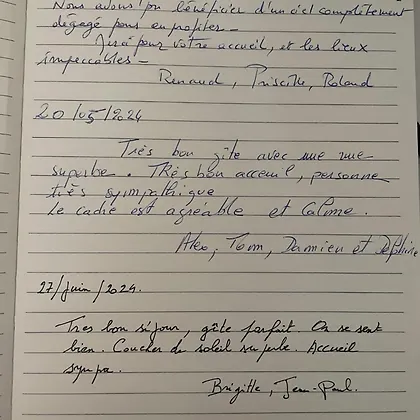 Nous avons pu bénéficier d'un ciel complètement
dégagé pour en profiter -
pour votre accueil, et les lieux
impeccables -
Renaud, Priscille, Roland
20/05/2024
Très bon gîte avec une vue
superbe. Très bon acceuil, personne
très sympathique
le cadre est agréable et calme.
Alex, Tom, Damien et Delphine
27/Juin/2024.
Tres bon séjour, gîte parfait. On se sent
bien. Coucher de soleil superbe. Accueil
sympa.
Brigitte, Jean-Paul.